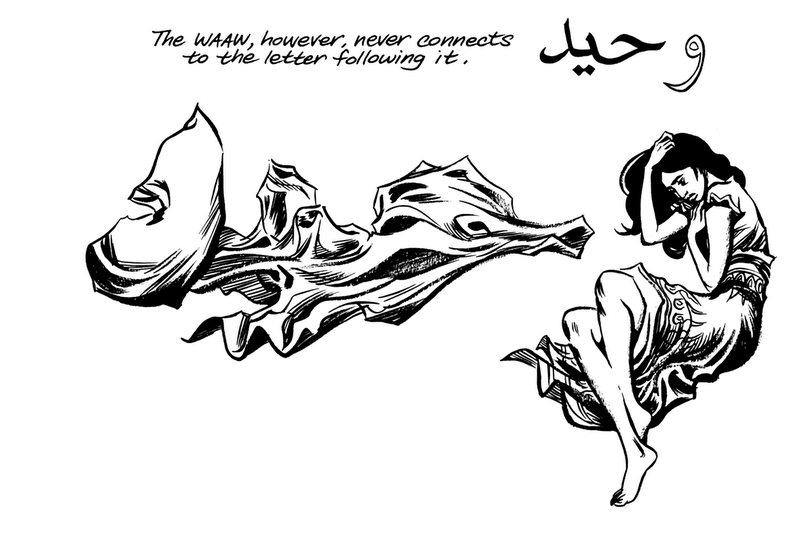 The WAAW, however, never connects
to the letter following it.
وحيد